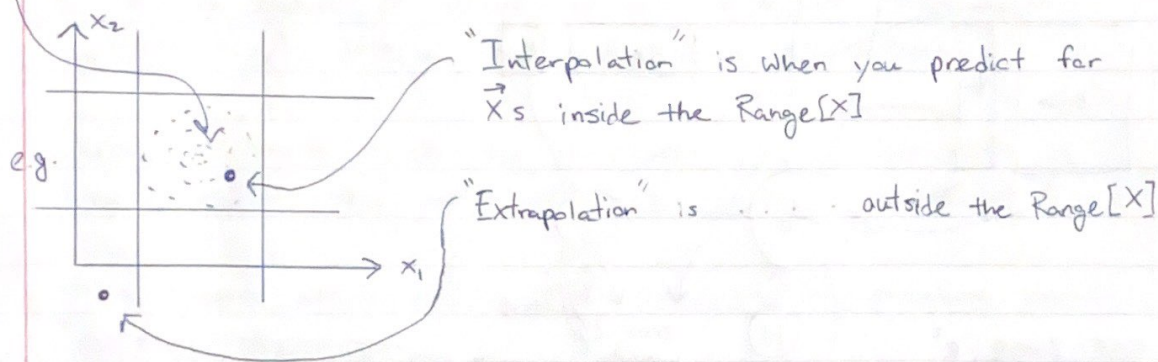 x₂
"Interpolation" is when you predict for
x⃗s inside the Range[X]
e.g.
"Extrapolation" is . . . . outside the Range[X]
x₁